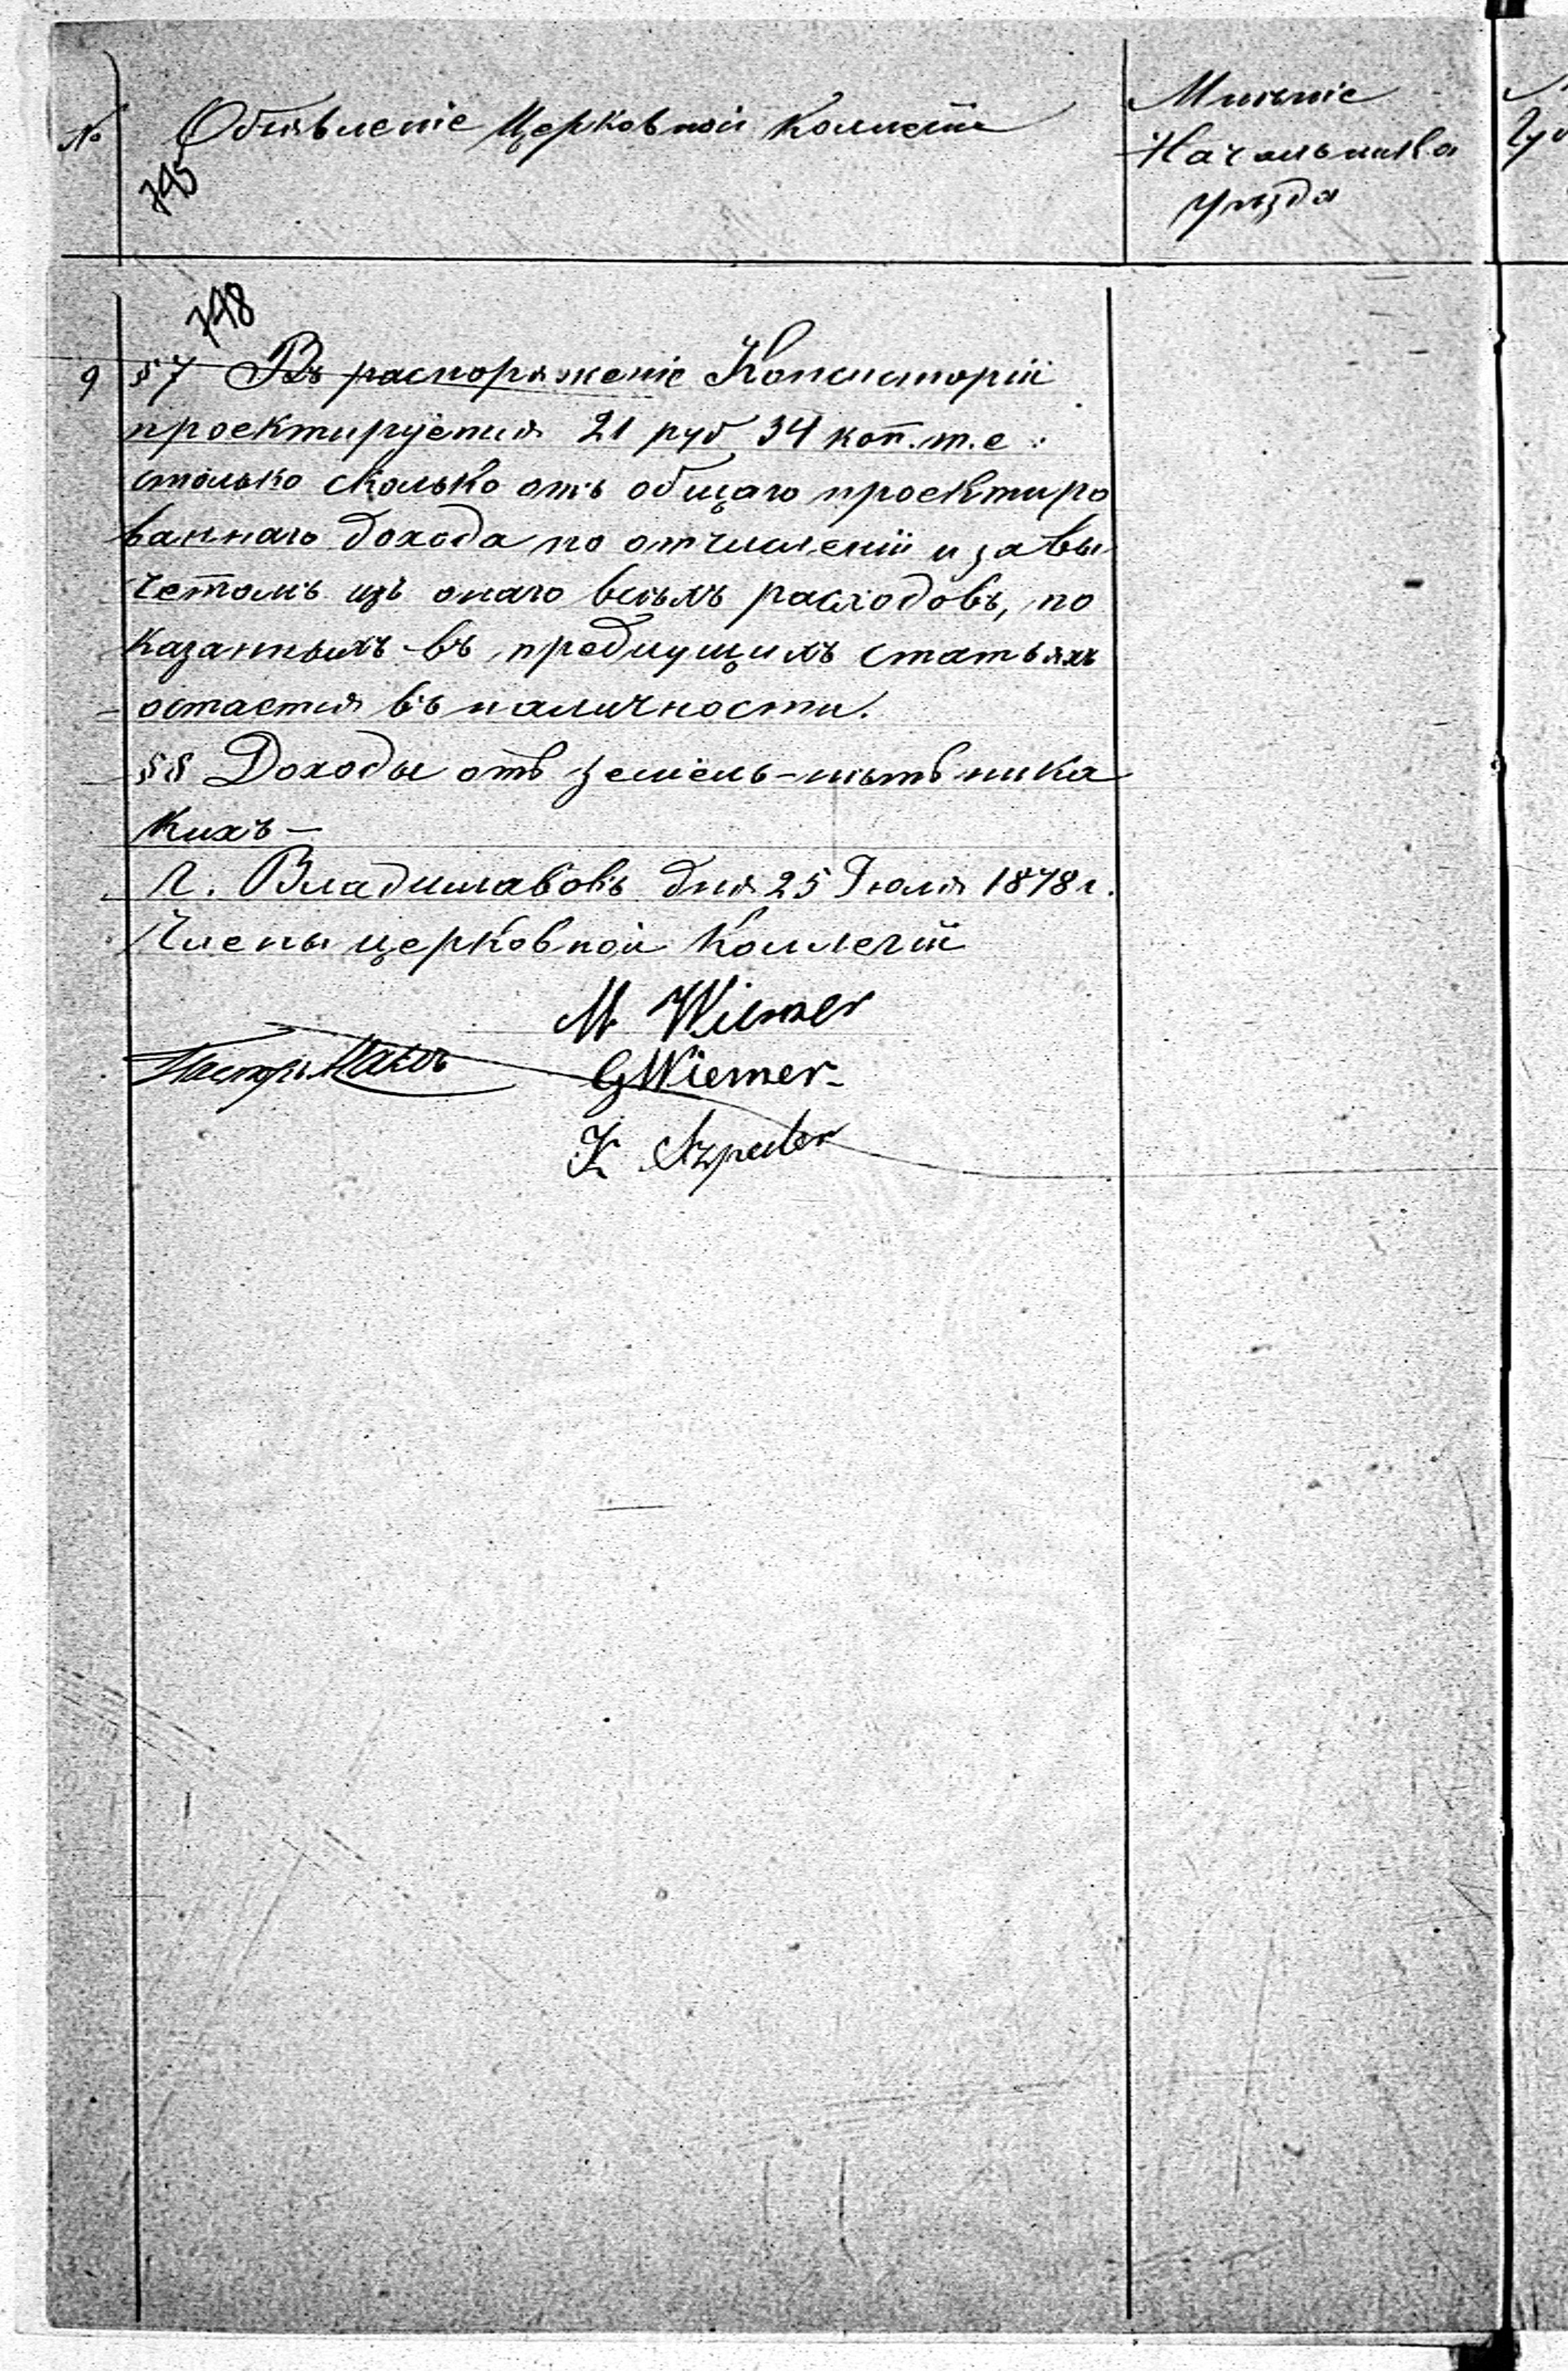 № Объявленіе Церковной Коллегіи
Мнѣніе
Начальника
уѣзда
795
798
9 §7 Въ распоряженіе Консисторіи
проектируется 21 руб 34 коп. т.е.
столько сколько отъ общаго проектиро
ваннаго дохода по отчисленіи и за вы
четомъ изъ онаго всѣхъ расходовъ, по
казанныхъ въ предидущихъ статьяхъ
остается въ наличности.
§8 Доходы отъ земель – нѣтъ ника
кихъ –
г. Владиславовъ дня 25 Іюля 1878 г.
Члены церковной Коллегіи
M. Wiemer
Пасторъ
G Wiemer.
K